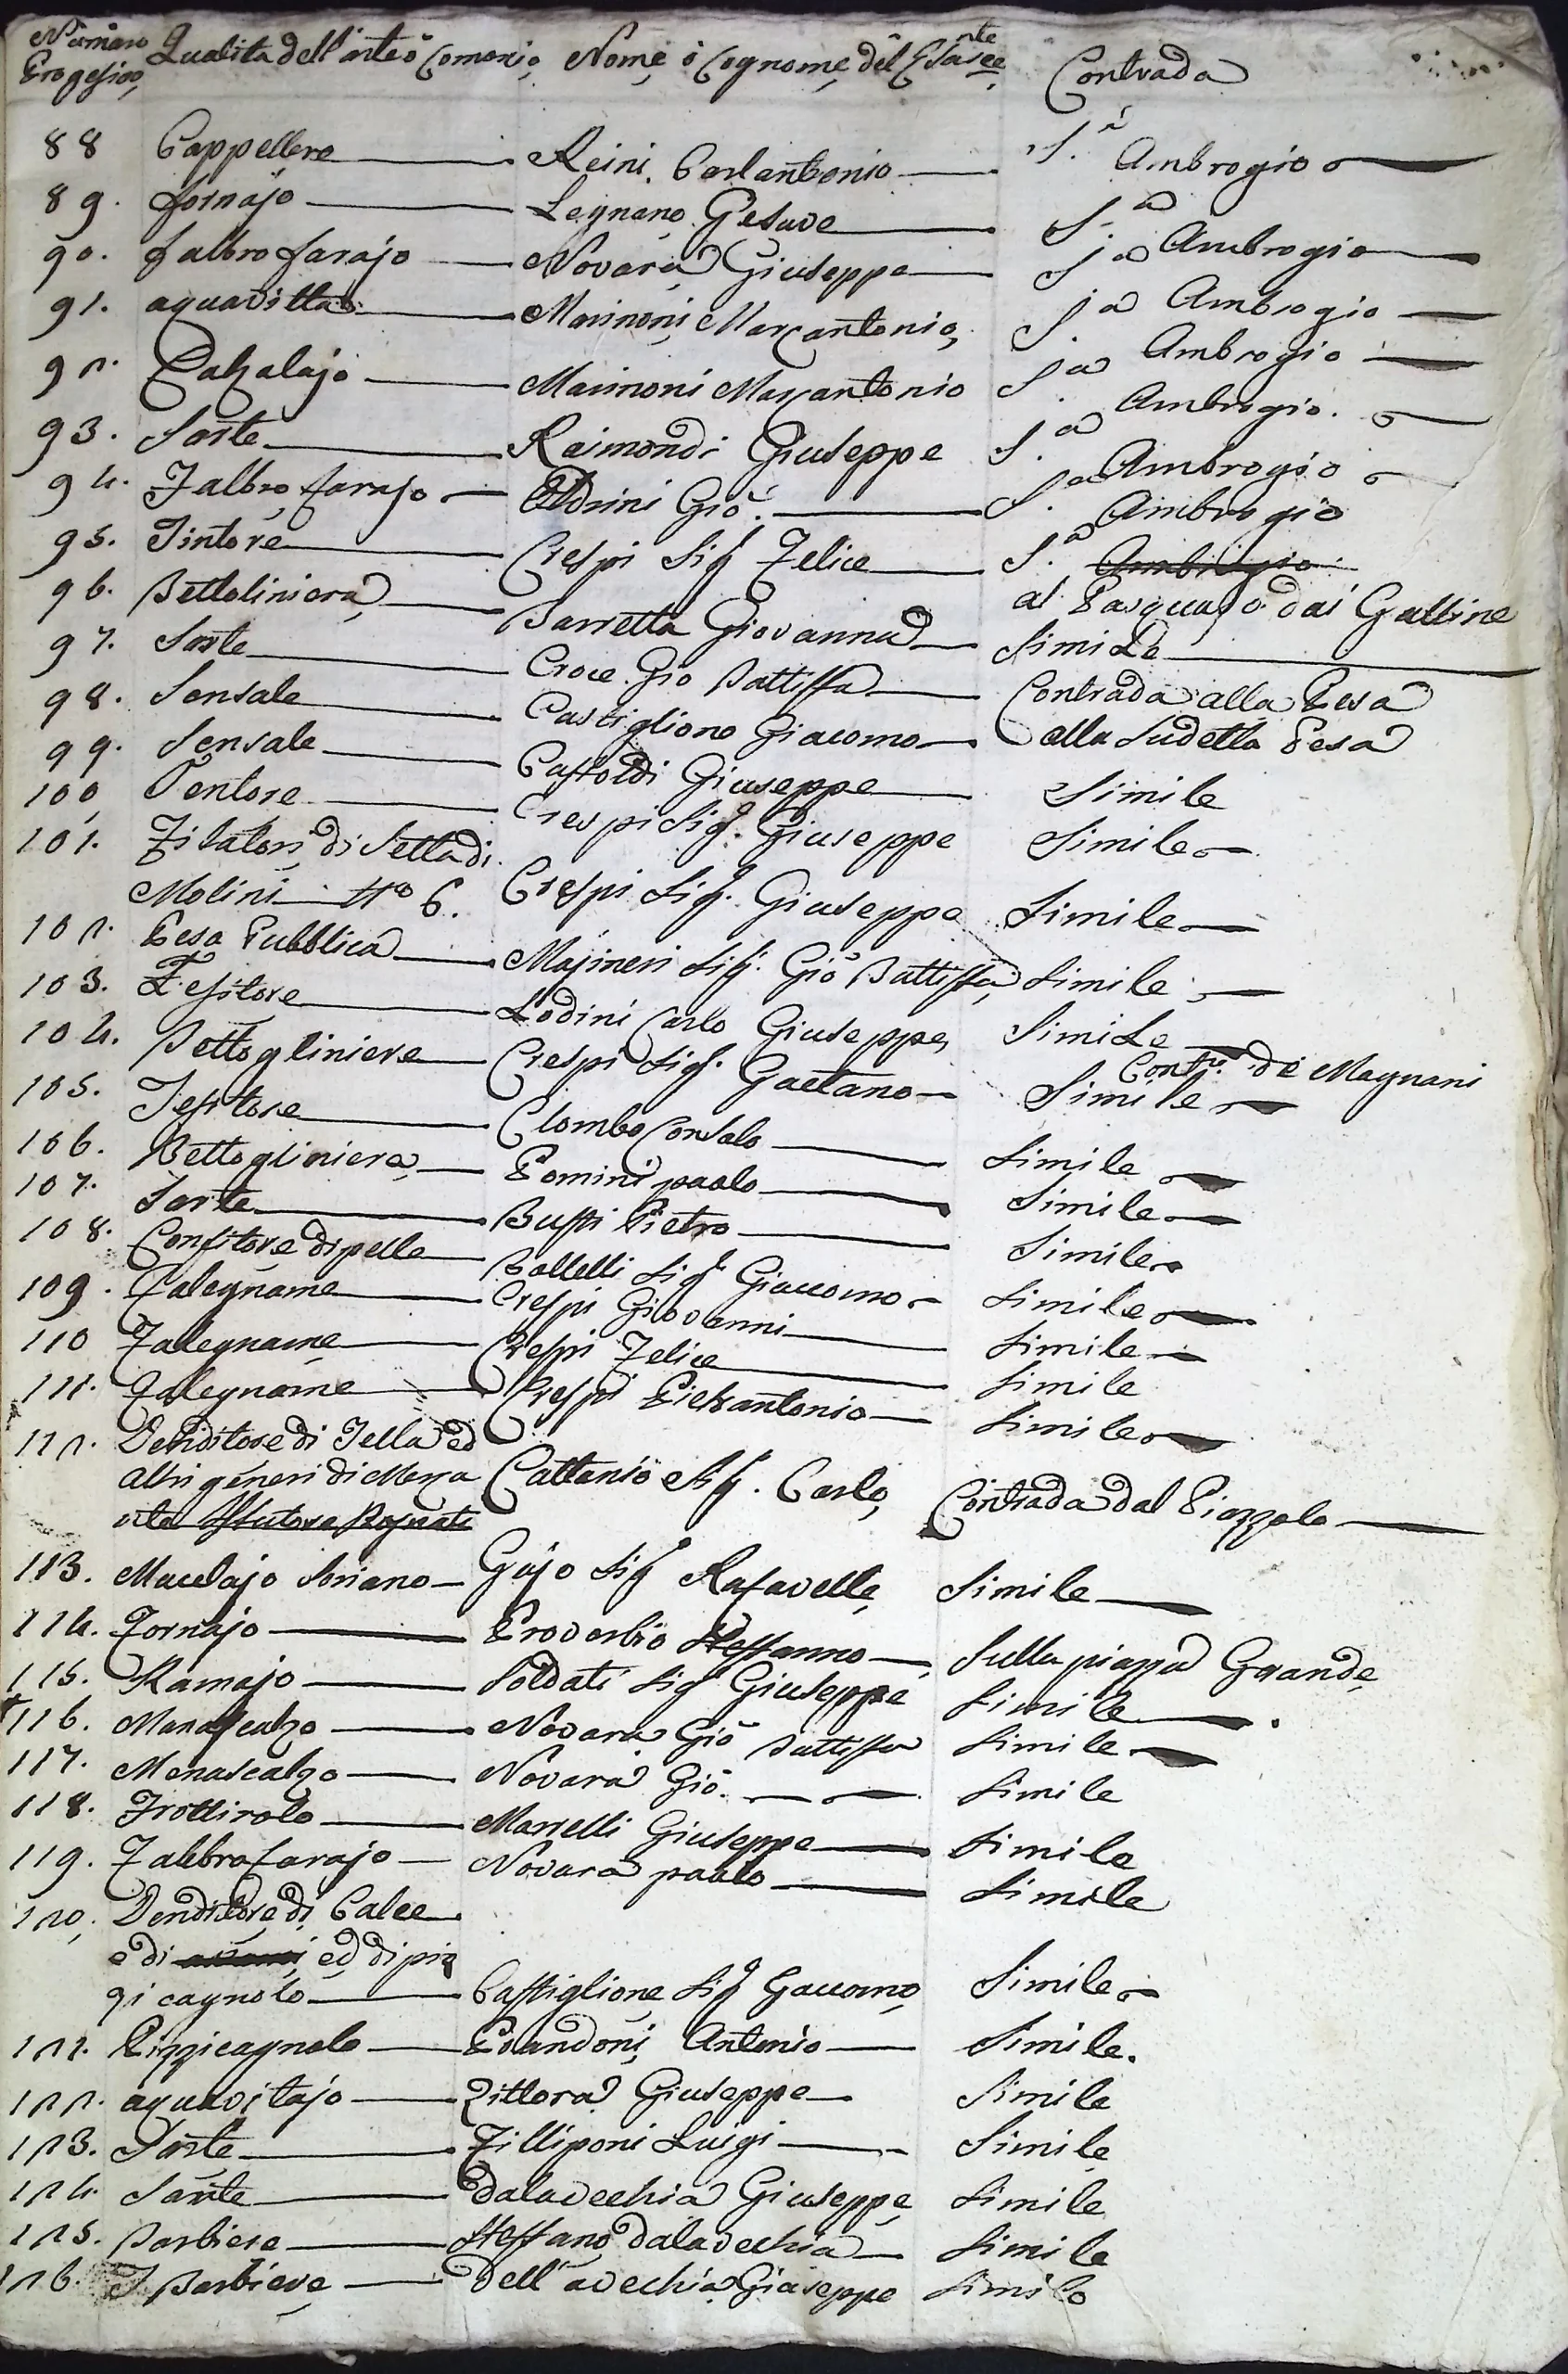 Numaro Progesivo Qualita dell'arte ò Comercio Nome è Cognome del Esarcente Contrada
88 Cappellero Reini Carlantonio S.a Ambrogio
89. fornajo Legnano Gesuve S.a Ambrogio
90. fabbro farajo Novara Giuseppe S.a Ambrogio
91. aquavittao Marinoni Marcantonio S.a Ambrogio
92. Calzalajo Marinoni Marcantonio S.a Ambrogio.
93. Sarte Raimondi Giuseppe S.a Ambrogio
94. Fabbro farajo Eldrini Giõ. S.a Ambrogio
95. Tintore Crespi Sig.r Felice S.a Ambrogio
96. Bettoliniera Barretta Giovanna al Pasquajo dai Galline
97. Sarte Croce Gio Battista Simile
98. Sensale Castigliono Giacomo Contrada alla Pesa
99. Sensale Castoldi Giuseppe alla Sudetta Pesa
100 Tentore Crespi Sig.r Giuseppe Simile
101. Filatori di Setta di Simile
Molini No 6. Crespi Sig.r Giuseppe Simile
102. Pesa Pubblica Majineri Sig.r Giõ Battista Simile
103. Tesitore Lodini Carlo Giuseppe Simile
104. Bettogliniere Crespi Sig.r Gaetano Simile Contr. de Magnani
105. Tesitore Clombo Consalo Simile
106. Bettogliniera Pomini paolo Simile
107. Sarte Bussi Pietro Simile
108. Confitore di pelle Ballelli Sig.r Giaccomo Simile
109. Falegname Crespi Giovanni Simile
110 Falegname Crespi Felice Simile
111. Falegname Crespi Pietrantonio Simile
112. Venditore di Tella ed
altri generi di Merza Cattanio Sig.r Carlo Contrada dal Piazzolo
113. Macelajo Soriano Gajo Sig.r Rafavelle Simile
114. Fornajo Proverbio Steffanno Sulla piazza Grande
115. Ramajo Soldati Sig.r Giuseppe Simile
116. Manascalzo Novara Giõ Battista Simile
117. Menascalzo Novara Giõ. Simile
118. Frottirolo Marrelli Giuseppe Simile
119. Fabbro farajo Novara paolo Simile
120. Venditore di Calce
e di ed di piz
gi cagnolo Castiglione Sig.r Gaccomo Simile
121. Pizzicagnolo Brandoni Antonio Simile.
122. aquavitajo Zittora Giuseppe Simile
123. Sarte Filliponi Luigi Simile
124. Sarte dalavechia Giuseppe Simile
125. Barbiere Steffano dalavechia Simile
126. Barbiere Dell'avechia Giuseppe Simile